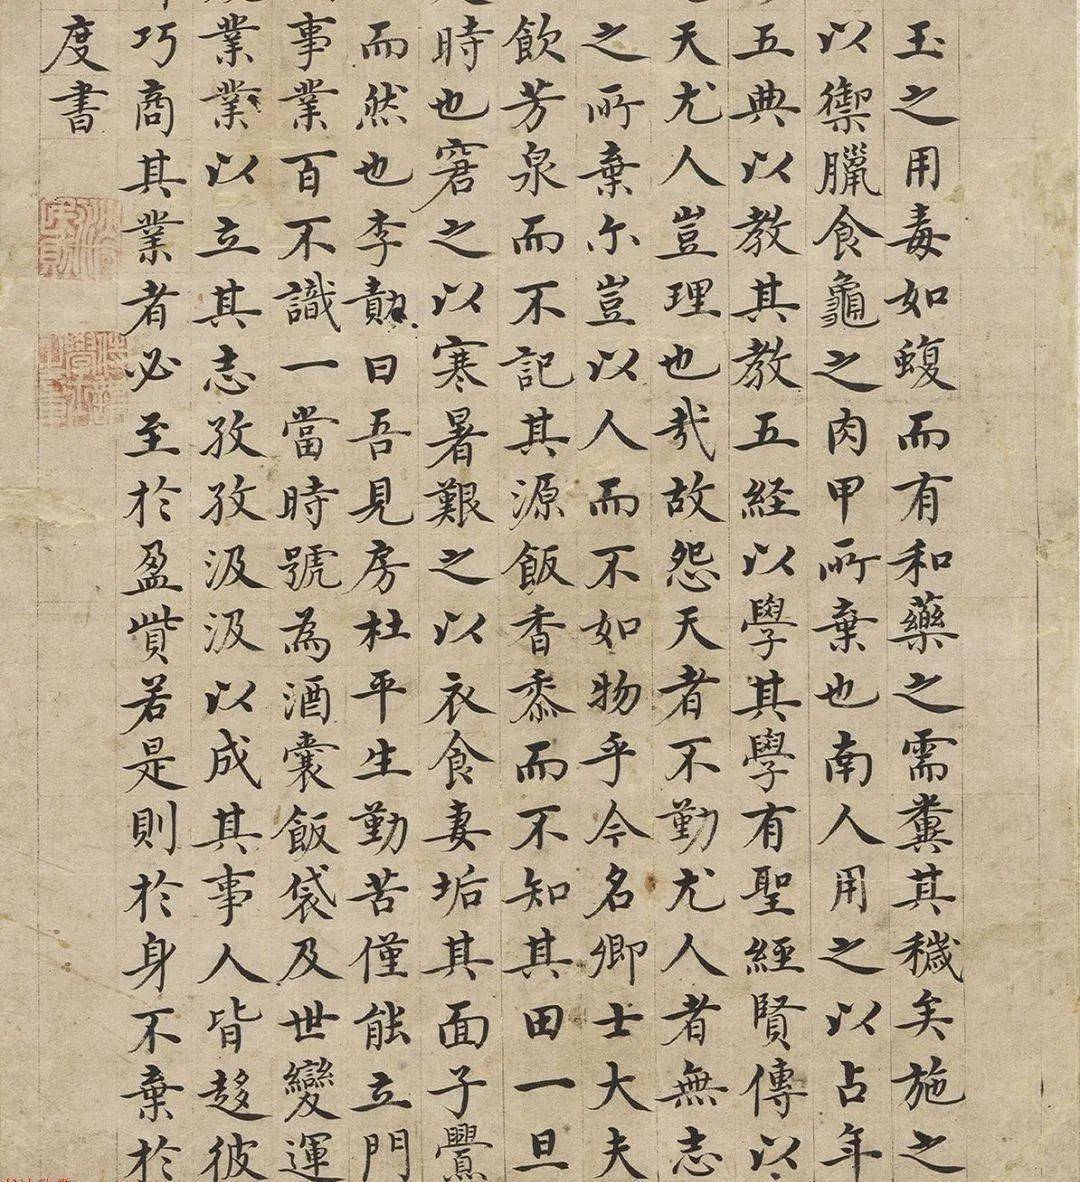 玉之用毒如蝮而有和藥之需糞其穢矣施之
以禦臘食龜之肉甲所棄也南人用之以占年
五典以教其教五経以學其學有聖經賢傳以
天尤人豈理也哉故怨天者不勤尤人者無志
之所棄尓豈以人而不如物乎今名卿士大夫
飲芳泉而不記其源飯香黍而不知其田一旦
時也窘之以寒暑艱之以衣食妻垢其面子釁
而然也李勣曰吾見房杜平生勤苦僅能立門
事業百不識一當時號為酒囊飯袋及世變運
業業以立其志孜孜汲汲以成其事人皆趍彼
巧商其業者必至於盈貲若是則於身不棄於
度書